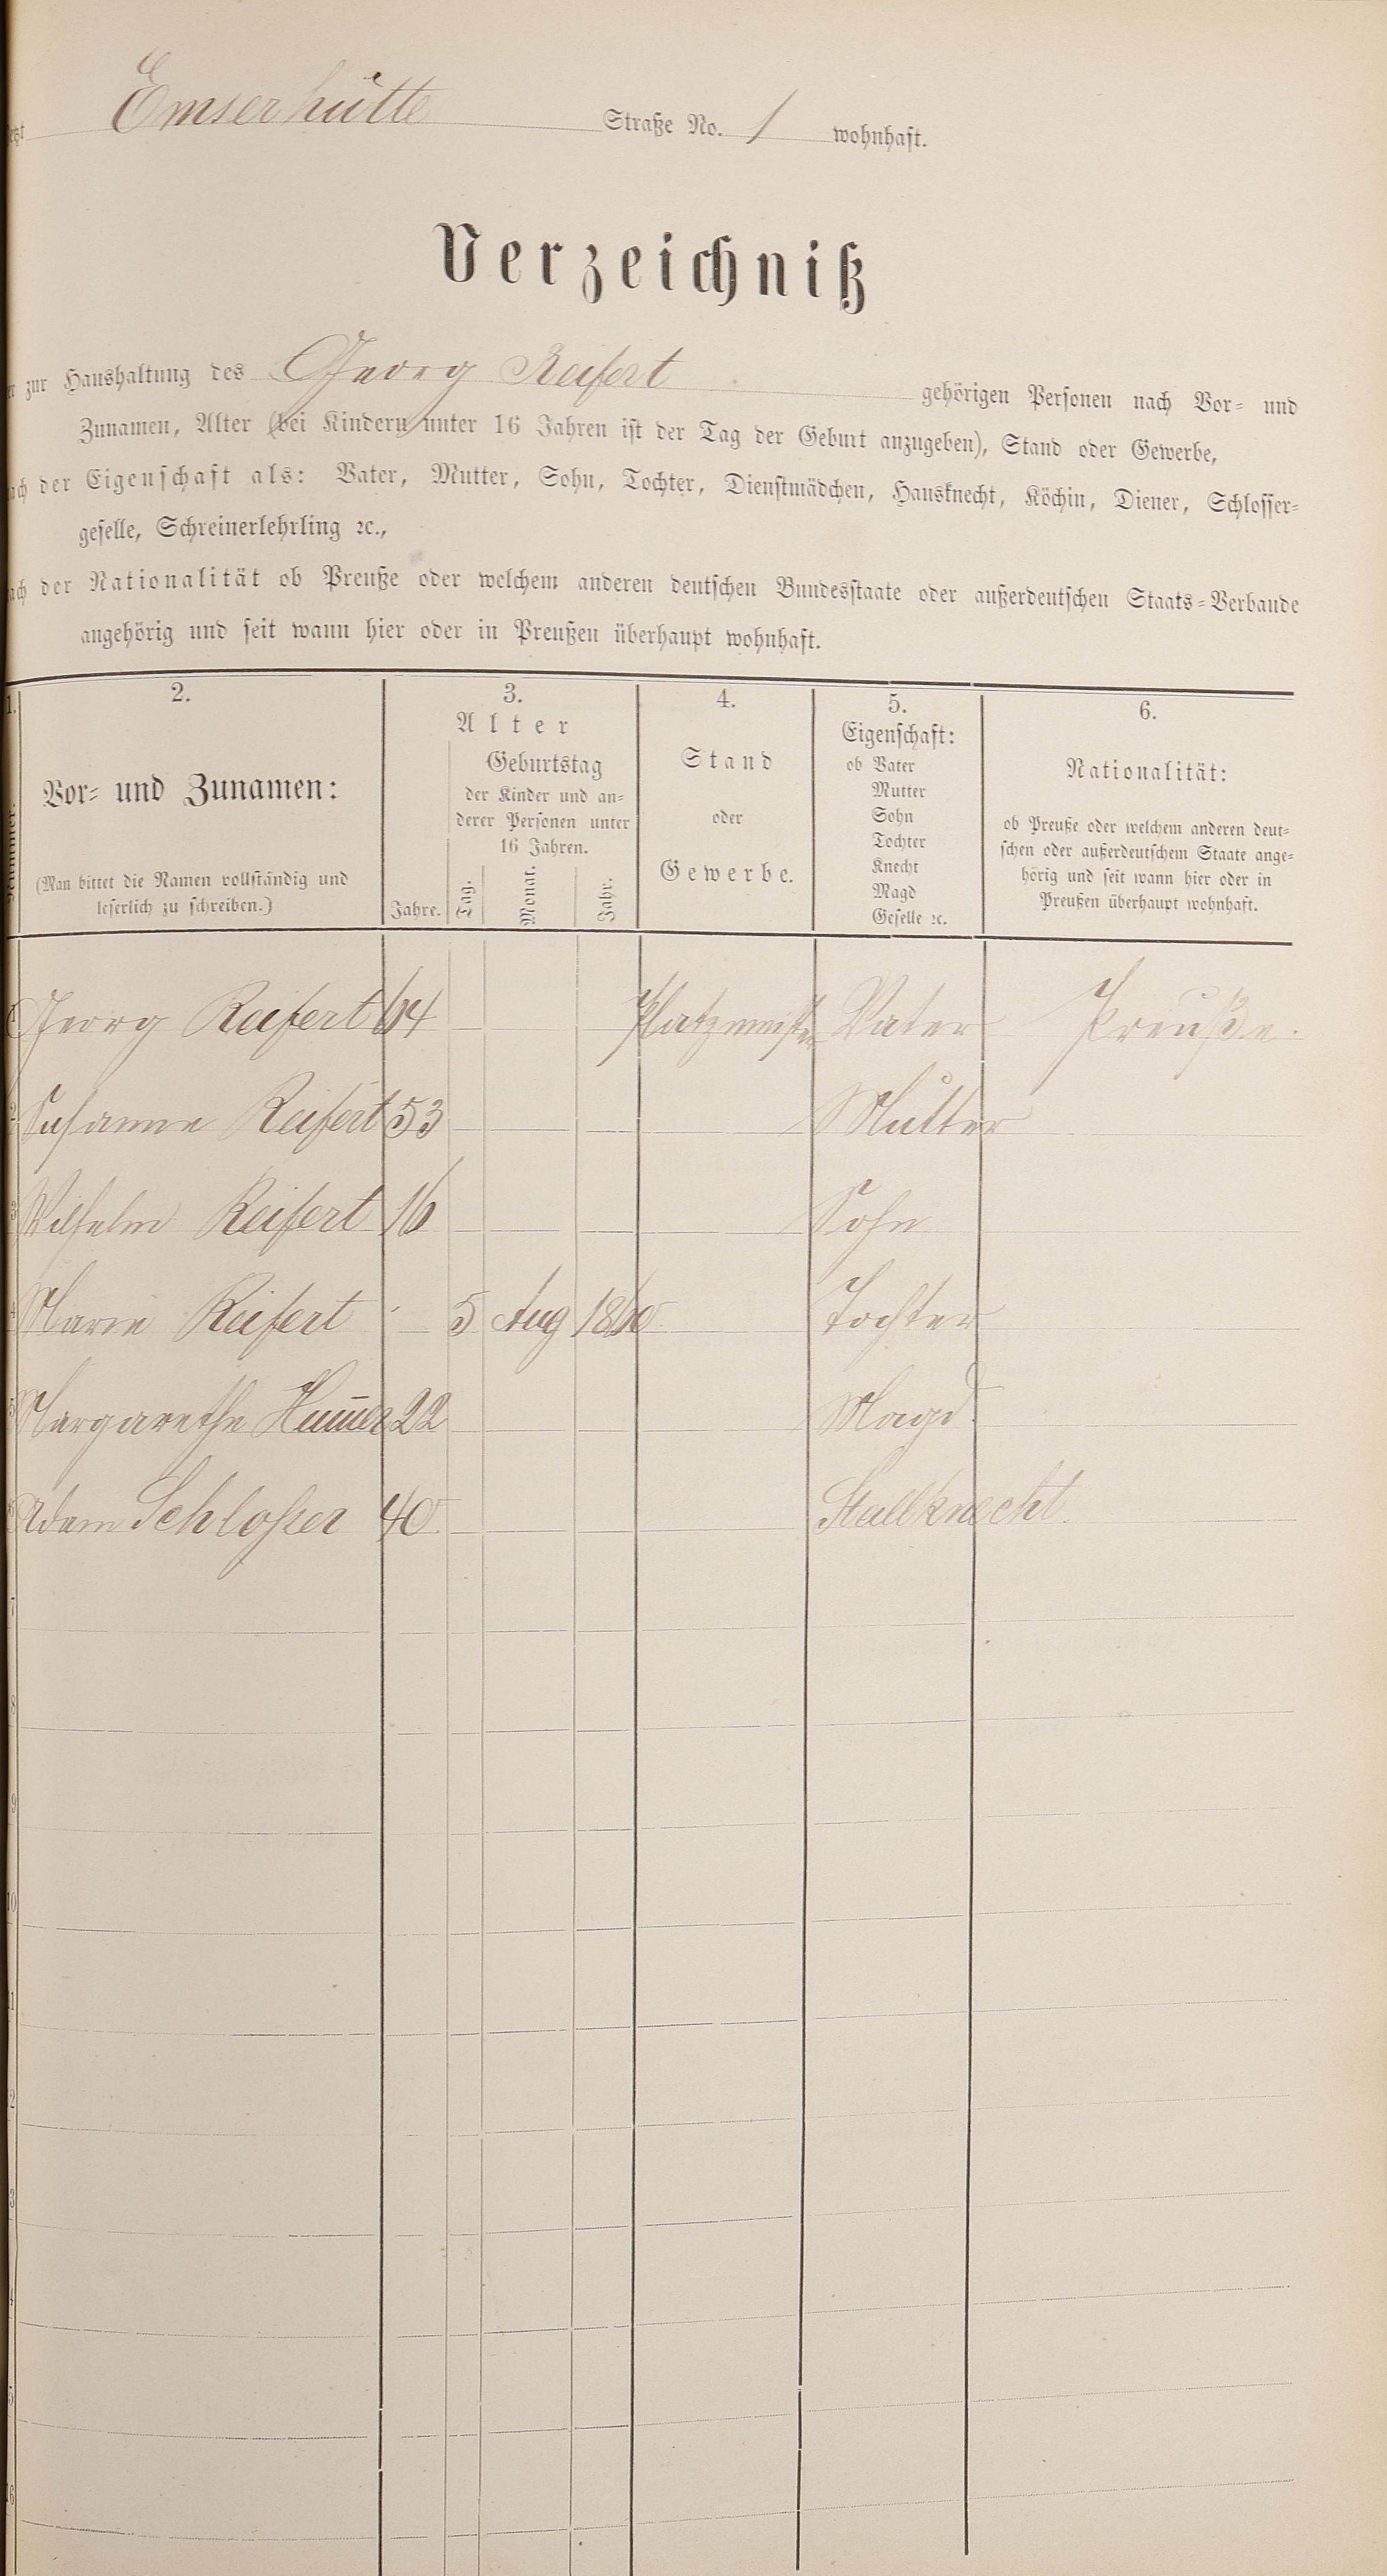 Emserhütte Straße No. 1 wohnhaft.
Verzeichniß
zur Haushaltung des Georg Reifert gehörigen Personen nach Vor- und
Zunamen, Alter (bei Kindern unter 16 Jahren ist der Tag der Geburt anzugeben), Stand oder Gewerbe,
der Eigenschaft als: Vater, Mutter, Sohn, Tochter, Dienstmädchen, Hausknecht, Köchin, Diener, Schlosser-
geselle, Schreinerlehrling ꝛc.,
der Nationalität ob Preuße oder welchem anderen deutschen Bundesstaate oder außerdeutschen Staats-Verbande
angehörig und seit wann hier oder in Preußen überhaupt wohnhaft.
1. 2. 3. 4. 5. 6.
Alter
Vor- und Zunamen:
(Man bittet die Namen vollständig und
leserlich zu schreiben.)
Jahre.
Geburtstag
der Kinder und an-
derer Personen unter
16 Jahren.
Tag. Monat. Jahr.
Stand
oder
Gewerbe.
Eigenschaft:
ob Vater
Mutter
Sohn
Tochter
Knecht
Magd
Geselle ꝛc.
Nationalität:
ob Preuße oder welchem anderen deut-
schen oder außerdeutschem Staate ange-
hörig und seit wann hier oder in
Preußen überhaupt wohnhaft.
1 Georg Reifert 64 Platzmeister Vater Preuße.
2 Susanne Reifert 53 Mutter
3 Wilhelm Reifert 16 Sohn
4 Marie Reifert 5 Aug 1860 Tochter
5 Margarethe 22 Magd
6 Adam Schloßer 40 Stallknecht.
7
8
9
10